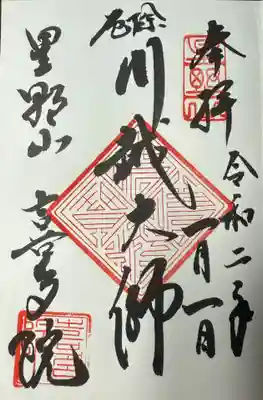 奉拝
令和二年一月一日
厄除
川越大師
星野山
喜多院